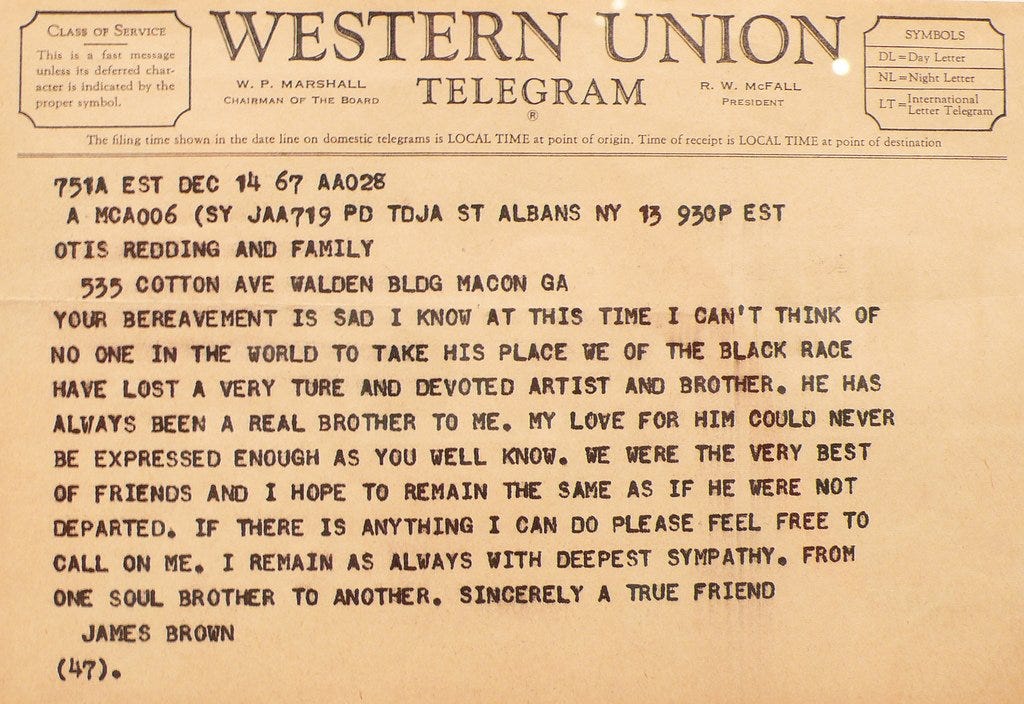 CLASS OF SERVICE
This is a fast message
unless its deferred char-
acter is indicated by the
proper symbol.
WESTERN UNION
TELEGRAM
®
W. P. MARSHALL
CHAIRMAN OF THE BOARD
R. W. McFALL
PRESIDENT
SYMBOLS
DL=Day Letter
NL=Night Letter
LT=International
Letter Telegram
The filing time shown in the date line on domestic telegrams is LOCAL TIME at point of origin. Time of receipt is LOCAL TIME at point of destination
751A EST DEC 14 67 AA028
A MCA006 (SY JAA719 PD TDJA ST ALBANS NY 13 930P EST
OTIS REDDING AND FAMILY
535 COTTON AVE WALDEN BLDG MACON GA
YOUR BEREAVEMENT IS SAD I KNOW AT THIS TIME I CAN'T THINK OF
NO ONE IN THE WORLD TO TAKE HIS PLACE WE OF THE BLACK RACE
HAVE LOST A VERY TURE AND DEVOTED ARTIST AND BROTHER. HE HAS
ALWAYS BEEN A REAL BROTHER TO ME. MY LOVE FOR HIM COULD NEVER
BE EXPRESSED ENOUGH AS YOU WELL KNOW. WE WERE THE VERY BEST
OF FRIENDS AND I HOPE TO REMAIN THE SAME AS IF HE WERE NOT
DEPARTED. IF THERE IS ANYTHING I CAN DO PLEASE FEEL FREE TO
CALL ON ME. I REMAIN AS ALWAYS WITH DEEPEST SYMPATHY. FROM
ONE SOUL BROTHER TO ANOTHER. SINCERELY A TRUE FRIEND
JAMES BROWN
(47).